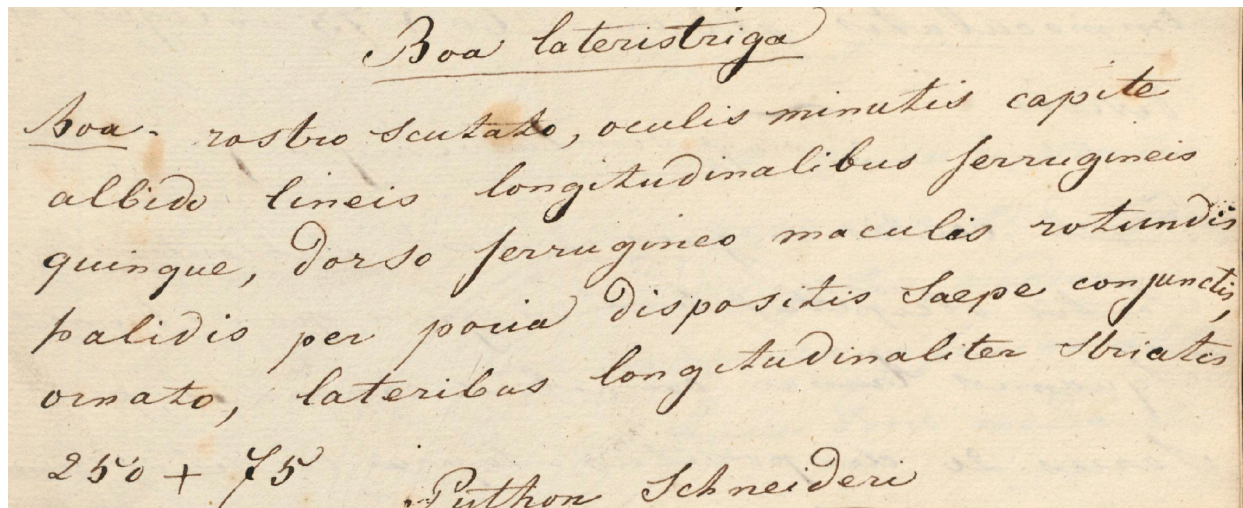 Boa lateristriga
Boa. rostro scutato, oculis minutis capite
albido lineis longitudinalibus ferrugineis
quinque, dorso ferrugineo maculis rotundis
palidis per paria dispositis saepe conjunctis,
ornato, lateribus longitudinaliter striatis
250 + 75
Python Schneideri